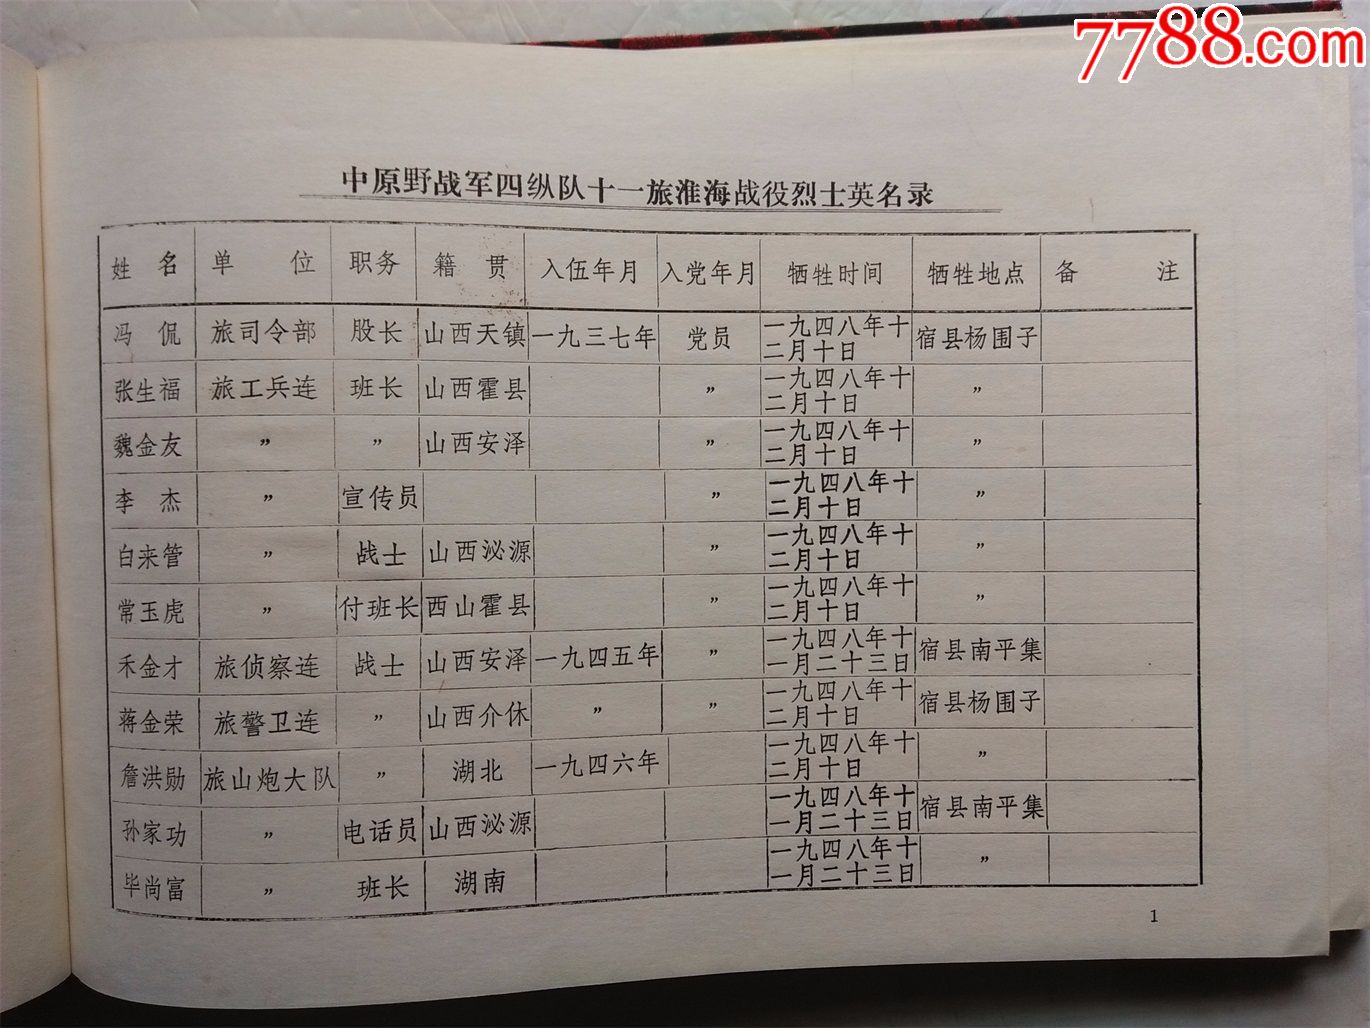 7788.com
中原野战军四纵队十一旅淮海战役烈士英名录
姓 名 单 位 职务 籍 贯 入伍年月 入党年月 牺牲时间 牺牲地点 备 注
冯 侃 旅司令部 股长 山西天镇 一九三七年 党员 一九四八年十二月十日 宿县杨围子
张生福 旅工兵连 班长 山西霍县 〃 一九四八年十二月十日 〃
魏金友 〃 〃 山西安泽 〃 一九四八年十二月十日 〃
李 杰 〃 宣传员 〃 一九四八年十二月十日 〃
白来管 〃 战士 山西泌源 〃 一九四八年十二月十日 〃
常玉虎 〃 付班长 西山霍县 〃 一九四八年十二月十日 〃
禾金才 旅侦察连 战士 山西安泽 一九四五年 〃 一九四八年十一月二十三日 宿县南平集
蒋金荣 旅警卫连 〃 山西介休 〃 〃 一九四八年十二月十日 宿县杨围子
詹洪勋 旅山炮大队 〃 湖北 一九四六年 一九四八年十二月十日 〃
孙家功 〃 电话员 山西泌源 一九四八年十一月二十三日 宿县南平集
毕尚富 〃 班长 湖南 一九四八年十一月二十三日 〃
1